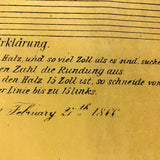 rklärung.
Halz, wird so viel Zoll als es sind, suche
en Zahl die Rundung aus.
den Halz 15 Zoll ist, so schneide vom
er Linie bis zu 15 links.
February 27th 1866